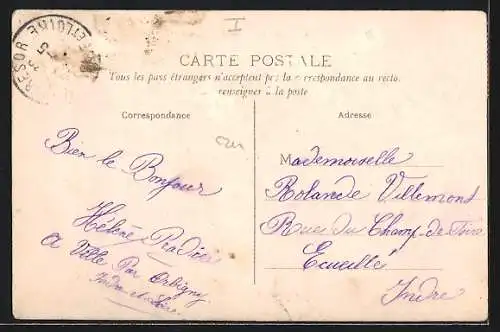 I
RESOR
ET LOIRE
CARTE POSTALE
Tous les pays étrangers n'acceptent pas la correspondance au recto.
renseigner à la poste
Correspondance
Adresse
Bien le Bonjour
Hélène Pradier
a Ville
Par Orbigny
Indre et Loire.
Mademoiselle
Rolande Villemont
Rue du Champ-de-Foire
Ecueillé
Indre